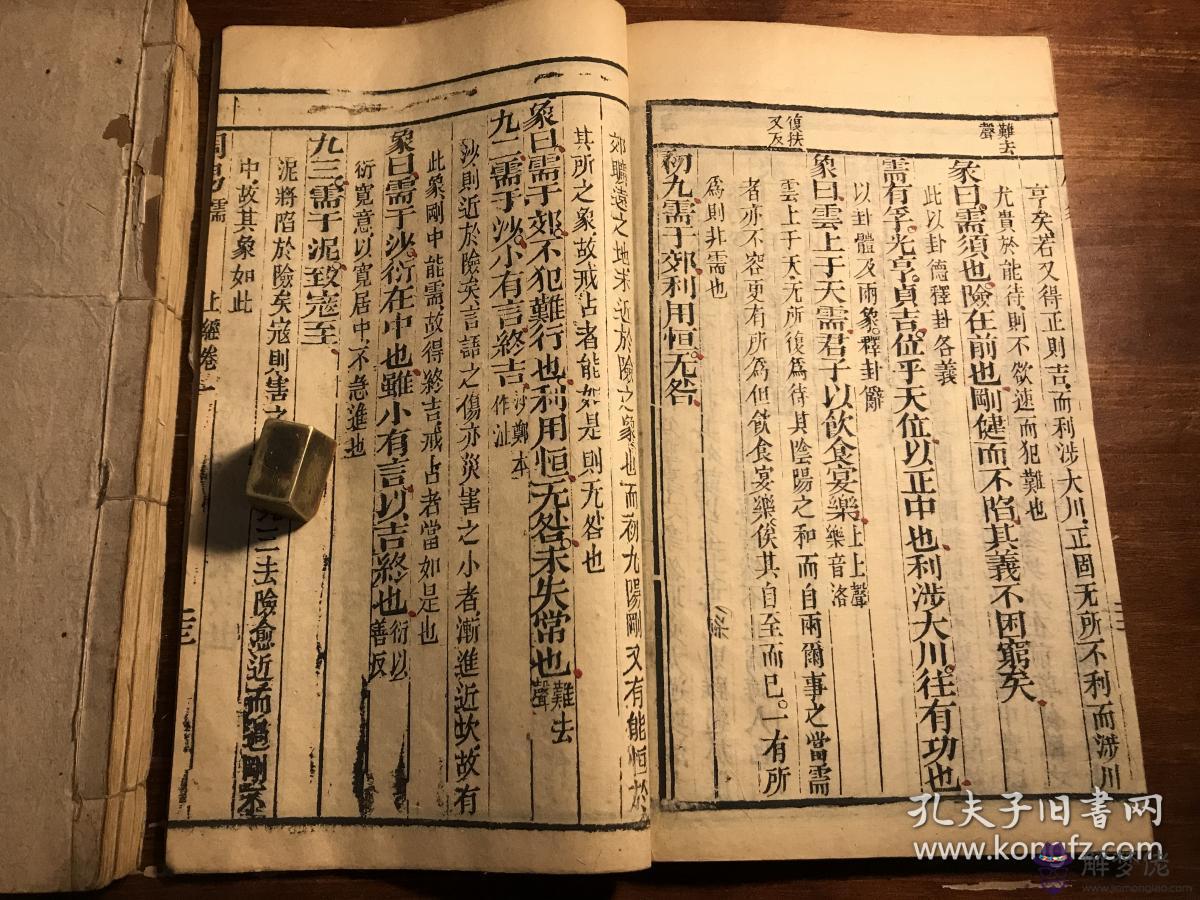 難去
聲
復扶
又反
亨矣若又得正則吉而利涉大川正固无所不利而涉川
尤貴於能待則不欲速而犯難也
彖曰需須也險在前也剛健而不陷其義不困窮矣
此以卦德釋卦名義
需有孚光亨貞吉位乎天位以正中也利涉大川往有功也
以卦體及兩象釋卦辭
象曰雲上于天需君子以飲食宴樂上上聲
樂音洛
雲上于天无所復爲待其陰陽之和而自雨爾事之當需
者亦不容更有所爲但飲食宴樂俟其自至而已一有所
爲則非需也
初九需于郊利用恒无咎
郊曠遠之地未近於險之象也而初九陽剛又有能恒於
其所之象故戒占者能如是則无咎也
象曰需于郊不犯難行也利用恒无咎未失常也難去
聲
九二需于沙小有言終吉沙鄭本
作沚
沙則近於險矣言語之傷亦災害之小者漸進近坎故有
此象剛中能需故得終吉戒占者當如是也
象曰需于沙衍在中也雖小有言以吉終也衍以
善反
衍寬意以寬居中不急進也
九三需于泥致寇至
泥將陷於險矣寇則害之
九三去險愈近而過剛不
中故其象如此
周易需 上經卷一 三三
孔夫子旧書网
www.kongfz.com
解梦佬
www.jiemonglao.com